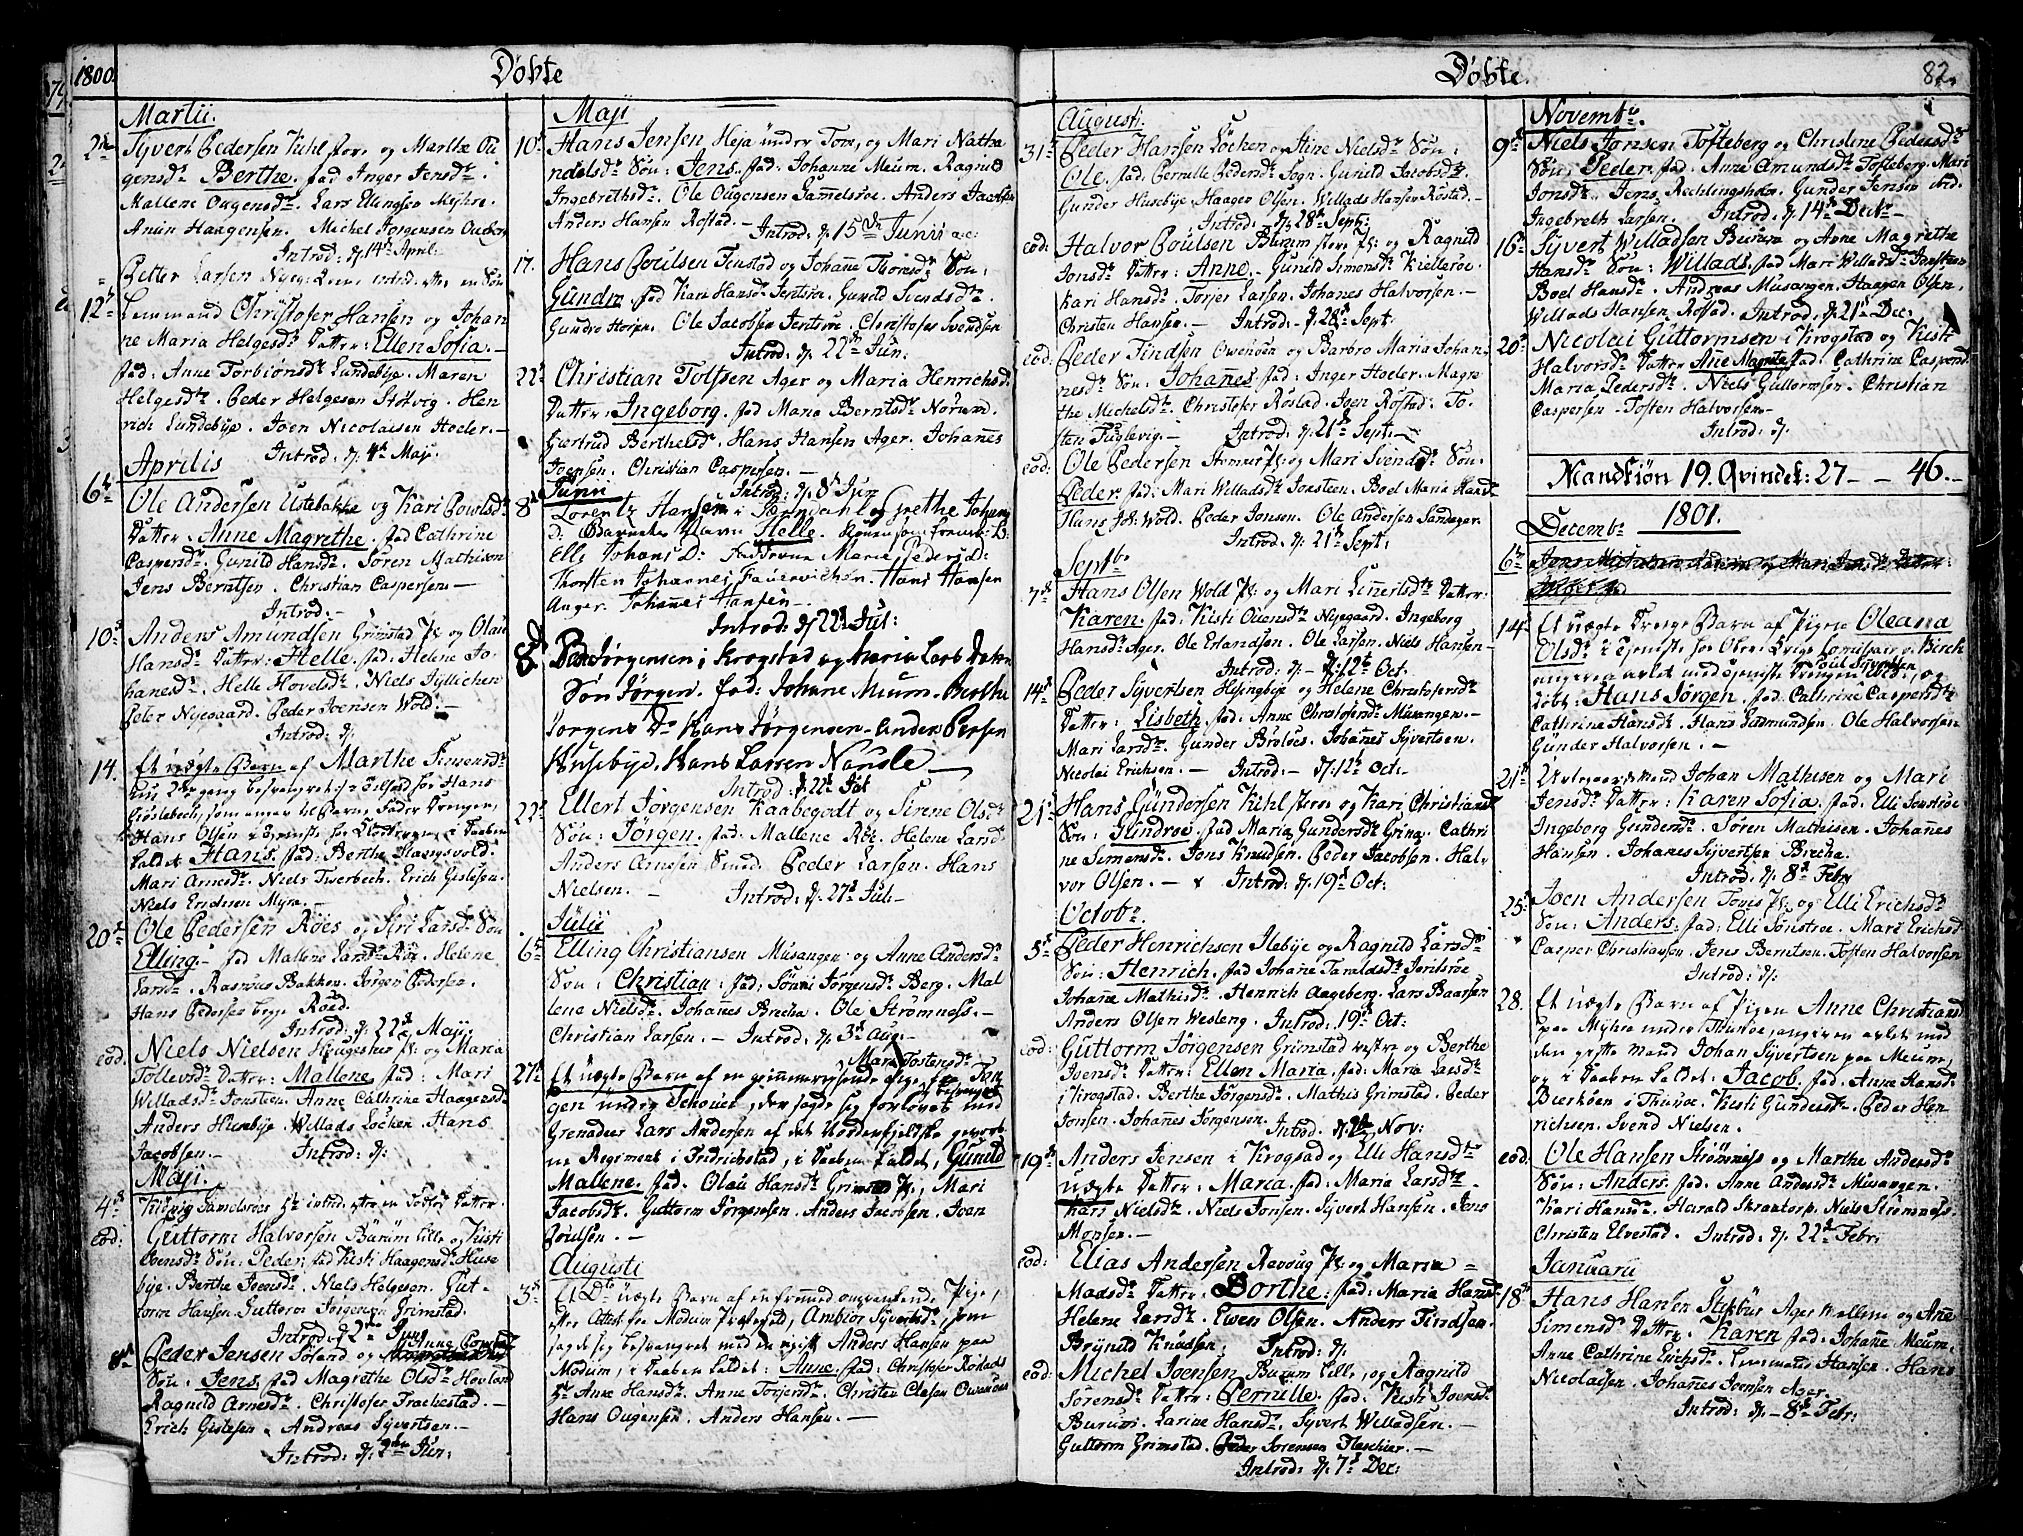 1800.
Døbte
Martii.
2de Syvert Pedersen Kihl store og Marthe Ou
gensdr Berthe. fad Inger Jensdr.
Mallene Ougensdr. Lars Ellingsen Myhre.
Amun Haagensen. Michel Jørgensen Oueberg
Introd: d: 14de April:
Petter Larsen
12te Lensmand Christofer Hansen og Johan
ne Maria Helgesdr Datter: Ellen Sofia.
fad: Anne Torbiørnsdr Lundebye. Maren
Helgesdr. Peder Helgesen Støtvig. Hen
rich Lundebye. Joen Nicolaisen Hoeler.
Introd: d: 4de Maji.
Aprilis
6te Ole Andersen Ustebakke og Kari Powlsdr
Datter. Anne Magrethe. fad Cathrine
Caspersdr. Gunild Hansdr. Søren Mathisen
Jens Berntsen. Christian Caspersen.
Introd:
10de Anders Amundsen Grimstad og Olau
Hansdr Datter: Helle. fad: Helene Jo
hanesdr. Helle Hovelsdr. Niels Syllichen
Peter Nyegaard. Peder Joensen Wold.
Introd: d:
14. Et uægte Barn af Marthe Simensdr
Hans Olsen i tjeneste
kaldet Hans. fad: Berthe Slangsvold.
Mari Arnesdr. Niels Twerbech. Erich Gislesen.
Niels Erichsen Myra.
20de Ole Pedersen Røes og Siri Larsdr Søn
Elling. fad Mallene Larsdr Røe. Helene
Larsdr. Rasmus Bakken. Jørgen Pedersen.
Hans Pedersen begge Røed.
Introd: d: 22de Maji:
eod: Niels Nielsen og Maria
Tollevsdr Datter: Mallene fad: Mari
Willadsdr Jonsteen. Anne Cathrine Haagensdr
Anders Husebye. Willads Løcken. Hans
Jacobsen. Introd: d:
Maji.
4de
eod: Guttorm Halvorsen Burum lille og Kisti
Joensdr Søn: Peder. fad Kisti Haagensdr Huse
bye. Berthe Joensdr. Niels Helgesen. Gut
torm Hansen. Guttorm Jørgensen Grimstad.
Introd: d: 2den Jun:
8de Peder Jensen Søland og Anne
Søn: Jens. fad Magrethe Olsdr Hovland
Ragnild Arnesdr. Christofer Frackestad.
Erich Gislesen. Andreas Syvertsen.
Introd: d: 2den Jun:
Maji
10de Hans Jensen Heja under Tom, og Mari Natha
nelsdr Søn: Jens. fad: Johanne Meum. Ragnild
Ingebrethsdr. Ole Ougensen Samelsrøe. Anders Isachsen
Anders Hansen Rostad. Introd: d: 15de Junii a.c:
17. Hans Poulsen Fenstad og Johanne Thomsdr Søn:
Gundro. fad Kari Hansdr Jerilsrøe. Gunild Svendsdr.
Gundro Horgen. Ole Jacobsen Jerilsrøe. Christofer Svendsen
Introd: d: 22de Jun.
22de Christian Tolfsen Ager og Maria Henrichsdr
Datter: Ingeborg. fad Maria Berntsdr Norum.
Giertrud Berthelsdr. Hans Hansen Ager. Johannes
Joensen. Christian Caspersen.
Introd: d: 8de Jun
Junii
8de Lorentz Hansen i og Grethe Johan
D: Barnets Navn Helle.
Elle Johans D: Fadderne Maria Peders D:
Thorsten Johannes Hans Hansen
Anger. Johannes Hansen
Introd: d: 22de Jul:
8de Jørgensen i Krogstad og Maria Lars Datter
Søn Jørgen. fad: Johane Meum. Berthe
Jørgens Dr Hans Jørgensen. Anders Persen
Husebye. Hans Larsen Nansle
Introd: d: 22de Jul
22de Ellert Jørgensen Kaabegodt og Sirene Olsdr
Søn: Jørgen. fad: Mallene Røe. Helene Larsdr
Anders Arnesen Smed. Peder Larsen. Hans
Nielsen. Introd: d: 27de Jul:
Julii
6te Elling Christiansen Musangen og Anne Andersdr
Søn: Christian: fad: Jørgensdr Berg. Mal
lene Nielsdr. Johannes Brecha. Ole Strømnes.
Christian Larsen. Introd: d: 3de Aug:
27de Et uægte Barn af en omvandrende Pige Mari Tostensdr
gen under Schouer, der sagde sig besvangret med
Grenadeer Lars Andersen af det Nordenfieldske gevorb
ne Regiment i Fridrichstad, i Daaben kaldet, Gunild
Mallene. fad. Olau Hansdr Grimstad, Mari
Jacobsdr. Guttorm Jørgensen. Anders Jacobsen. Iver
Poulsen.
Augusti
3de Et Do uægte Barn af en fremmed omvankende Pige,
efter Attest fra Modum Præstegield, Ambiør Syvertsdr, som
sagde sig besvangret med en gift Anders Hansen paa
Modum, i Daaben kaldet: Anne. fad: Christofer Rostads
Hr Anne Hansdr. Anne Torgersdr. Christen Olesen Owenøen
Hans Ougensen. Anders Hansen.
Døbte.
82.
Augusti.
31te Peder Hansen Løcken og Stine Nielsdr Søn:
Ole. fad: Pernille Pedersdr Sogn. Gunild Jacobsdr.
Gunder Husebye. Haagen Olsen. Willads Hansen Rostad.
Introd: d: 28de Sept:
eod: Halvor Poulsen Burum store og Ragnild
Jonsdr Datter: Anne. Gunild Simonsdr Kiellerøe.
Kari Hansdr. Torjer Larsen. Johanes Halvorsen.
Christen Hansen. Introd: d: 28de Sept:
eod: Peder Findsen Owenøen og Barbro Maria Johan
nesdr Søn: Johannes. fad: Inger Hoeler. Magre
the Michelsdr. Christofer Rostad. Joen Rostad. To
sten Fuglevig. Introd: d: 21de Sept:
eod: Ole Pedersen og Mari Svendsdr Søn:
Peder. fad: Mari Willadsdr Jonsteen. Boel Maria Hansdr
Hans Joh: Wold. Peder Jonsen. Ole Andersen Sandager.
Introd: d: 21de Sept:
Septbr.
7de Hans Olsen Wold og Mari Linnertsdr Datter:
Karen. fad: Kisti Ouensdr Nyegaard. Ingeborg
Hansdr Ager. Ole Erlandsen. Ole Larsen. Niels Hansen
Introd: d: 12te Oct.
14de Peder Syvertsen Helsingbye og Helene Christofersdr
Datter: Lisbeth. fad: Anne Christofersdr Musangen.
Mari Larsdr. Gunder Brøløes. Johannes Syvertsen.
Nicolai Erichsen. Introd: d: 12te Oct:
21de Hans Gundersen Kihl store og Kari Christiansdr
Søn: Gundroe. fad Maria Gundersdr Grina. Cathri
ne Simensdr. Jens Knudsen. Peder Jacobsen. Hal
vor Olsen. Introd: d: 19de Oct:
Octobr.
5te Peder Henrichsen Ilebye og Ragnild Larsdr
Søn: Henrich. fad Johanne Taraldsdr Jerilsrøe
Johanne Mathisdr. Henrich Aageberg. Lars Baarsen
Anders Olsen Wesleng. Introd: 19de Oct:
eod: Guttorm Jørgensen Grimstad vestre og Berthe
Svensdr Datter: Ellen Maria. fad: Maria Larsdr
i Krogstad. Berthe Jørgensdr. Mathis Grimstad. Peder
Jonsen. Johannes Jørgensen.
Introd. d: Nov:
19de Anders Jensen i Krogstad og Elli Hansdr
uægte Datter: Maria. fad: Maria Larsdr.
Kari Nielsdr. Niels Jonsen. Syvert Hansen. Jens
Monsen.
eod: Elias Andersen Revoug og Maria
Madsdr Datter: Dorthe: fad: Maria Hansdr
Helene Larsdr. Ewen Olsen. Anders Findsen.
Brynild Knudsen. Introd: d:
eod: Michel Joensen Burum lille, og Ragnild
Sørensdr Datter: Pernille. fad: Kisti Joensdr
Burum. Larine Hansdr. Syvert Willadsen.
Guttorm Grimstad. Peder Sørensen Flaschier.
Introd: d: 7de Dec:
Novembr.
9de Niels Jonsen Tofteberg og Christine Pedersdr
Søn: Peder. fad: Anne Amundsdr Tofteberg. Mari
Jonsdr. Jens Rechlingsholm. Gunder Jensen
Ingebreth Larsen. Introd: d: 14de Decbr
16de Syvert Willadsen Burum og Anne Magrethe
Hansdr Søn: Willads. fad Mari Willadsdr Jonsteen
Boel Hansdr. Andreas Musangen. Haagen Olsen.
Willads Hansen Rostad. Introd: d: 21de Dec:
20de Nicolai Guttormsen i Krogstad og Kisti
Halvorsdr Datter Ane Magrete fad: Cathrine Caspersdr
Maria Pedersdr. Niels Guttormsen. Christian
Caspersen. Tosten Halvorsen.
Introd: d:
Mandkiøn 19. Qvindek: 27 — 46.
1801.
Decembr
6te
14. Et uægte Drenge Barn af Pigen Oleana
Olsdr i tjeneste hos Ober Krigs Comissair v. Birch
angiven avlet med Poul Syvertsen, og
døbt: Hans Jørgen. fad: Cathrine Caspersdr
Cathrine Hansdr. Hans Gudmundsen. Ole Halvorsen
Gunder Halvorsen.
21de Johan Mathisen og Mari
Jensdr Datter: Karen Sofia. fad: Elli Sonstrøe
Ingeborg Gundersdr. Søren Mathisen. Johannes
Hansen. Johanes Syvertsen Brecha.
Introd: d: 8de Febr
25de Joen Andersen Tomis og Elli Erichsdr
Søn: Anders. fad: Elli Sonstroe. Mari Erichsdr
Casper Christiansen. Jens Berntsen. Tosten Halvorsen
Introd: d:
28. Et uægte Barn af Pigen Anne Christiansdr
paa Myhre under Thurøe, angiven avlet med
den gifte mand Johan Syvertsen paa Meum,
og i Daaben kaldet: Jacob. fad: Anne Hansdr
Bierkøen i Thurøe. Kisti Gundersdr. Peder Hen
richsen. Svend Nielsen.
eod. Ole Hansen Strømnes og Marthe Andersdr
Søn: Anders. fad: Anne Andersdr Musangen.
Kari Hansdr. Harald Skrentorp. Niels Strømness.
Christen Elvestad. Introd: d: 22de Febr:
Januarii
18de Hans Hansen Stubbus Ager mellem og Ane
Simensdr Datter. Karen fad: Johanne Meum.
Anne Cathrine Erichsdr. Lensmand Hansen. Hans
Nicolaisen. Johannes Joensen Ager.
Introd: d: 8de Febr: